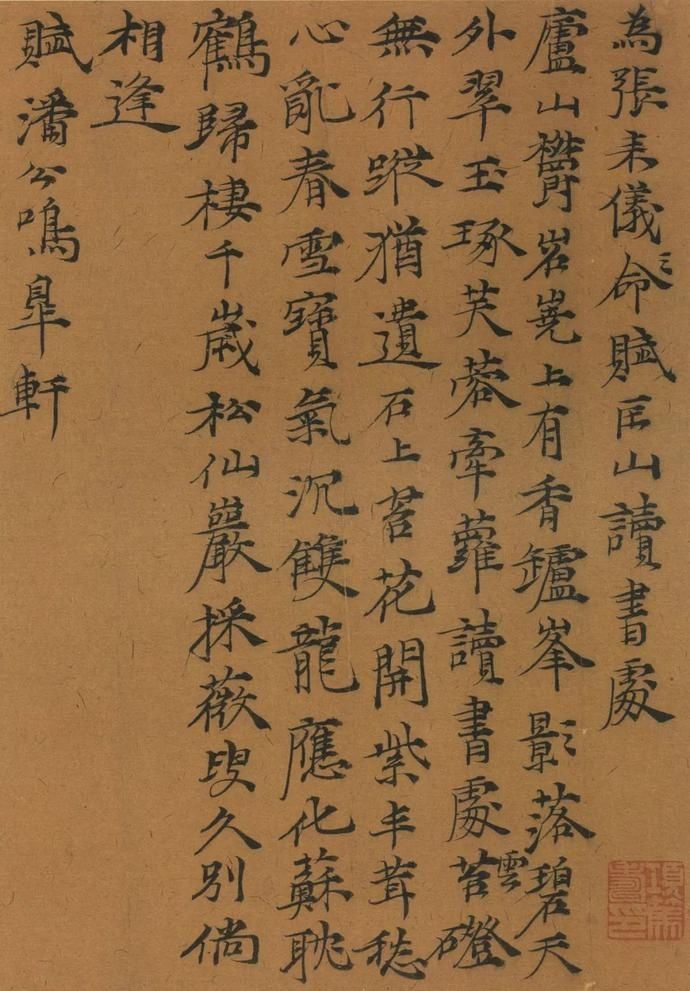 為張来儀命賦匡山讀書處
廬山欝岧嶤上有香罏峯影落碧天
外翠玉琢芙蓉牽蘿讀書處苔雲磴
無行蹤猶遺石上苔花開紫丰茸愁
心亂春雪寶氣沉雙龍應化蘇耽
鶴歸棲千歲松仙巖採薇叟久別倘
相逢
賦潘公鳴皐軒
項篤壽印